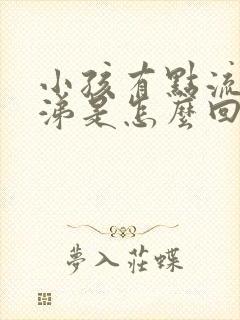 小孩有點流
涕是怎麼回
夢入莊蝶